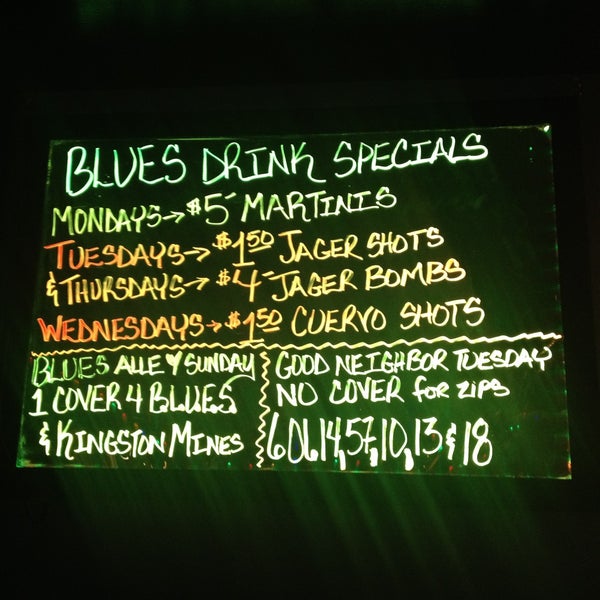 BLUES DRINK SPECIALS
MONDAYS → $5- MARTINIS
TUESDAYS → $1.50 JAGER SHOTS
& THURSDAYS → $4- JAGER BOMBS
WEDNESDAYS → $1.50 CUERVO SHOTS
BLUES ALLEY SUNDAY
1 COVER 4 BLUES
& KINGSTON MINES
GOOD NEIGHBOR TUESDAY
NO COVER for ZIPS
60614,57,10,13 & 18